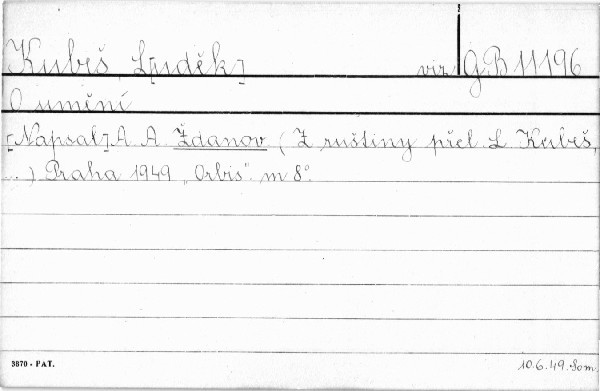 Kubeš, L[uděk] viz GB 11196
O umění
[Napsal] A. A. Ždanov. (Z ruštiny přel. L. Kubeš,
...) Praha 1949 „Orbis". m 8°.
3870 - PAT. 10.6.49. Som.